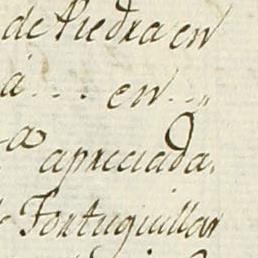 de Piedra en
a... en...
a apreciada.
Tortuguillas